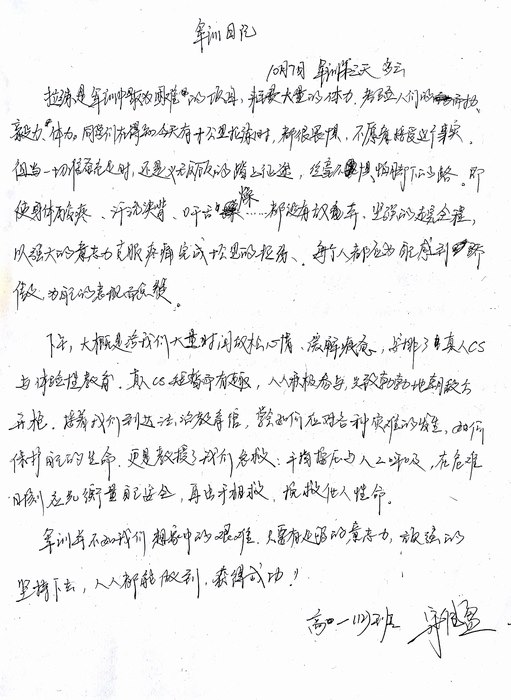 军训日记
10月7日 军训第三天 多云
拉练是军训中最为困难的项目,耗费大量的体力,考验人们的
毅力、体力。同学们在得知今天有十公里拉练时,都很畏惧,不愿意接受这个事实。
但当一切准备就绪时,还是义无反顾的踏上征途,丝毫不惧怕脚下的路。即
使身体酸疼、汗流浃背、口干舌燥……都没有放弃,坚强的走完全程,
以强大的意志力克服疼痛完成十公里的拉练、每个人都应为自己感到骄
傲,为自己的表现而
下午,大概是给我们大量时间放松心情、缓解疲惫,安排了真人CS
与体验性教育。真人CS经营而有趣,人人积极参与,
开枪。接着我们到达法治教育馆,学如何应对各种灾难的发生,如何
保护自己的生命。更是教授了我们急救:于胸按压与人工呼吸,在危难
时刻应先衡量自己安全,再出手相救,挽救他人性命。
军训并不如我们想象中的艰难,只要有足够的意志力,放松的
坚持下去,人人都能做到,获得成功!
高一(12)班